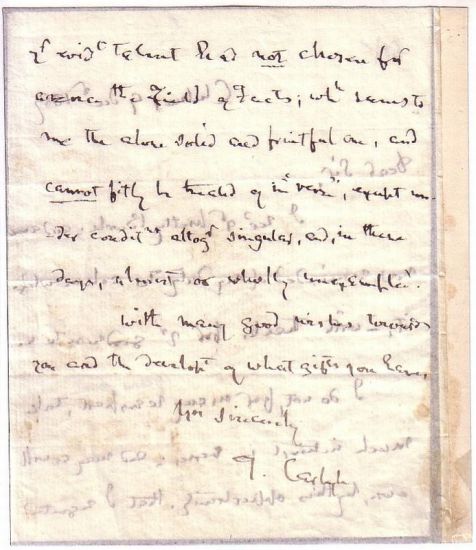 yr evidt talent had not chosen for
the Field of Facts; wh seems to
me the alone solid and fruitful one, and
cannot fitly be treated of in "verse", except un-
der conditns altogr singular, and, in these
days, almost or wholly unexampled.
With many good wishes towards
you and the developt of what gifts you have,
Yrs sincerely
T. Carlyle